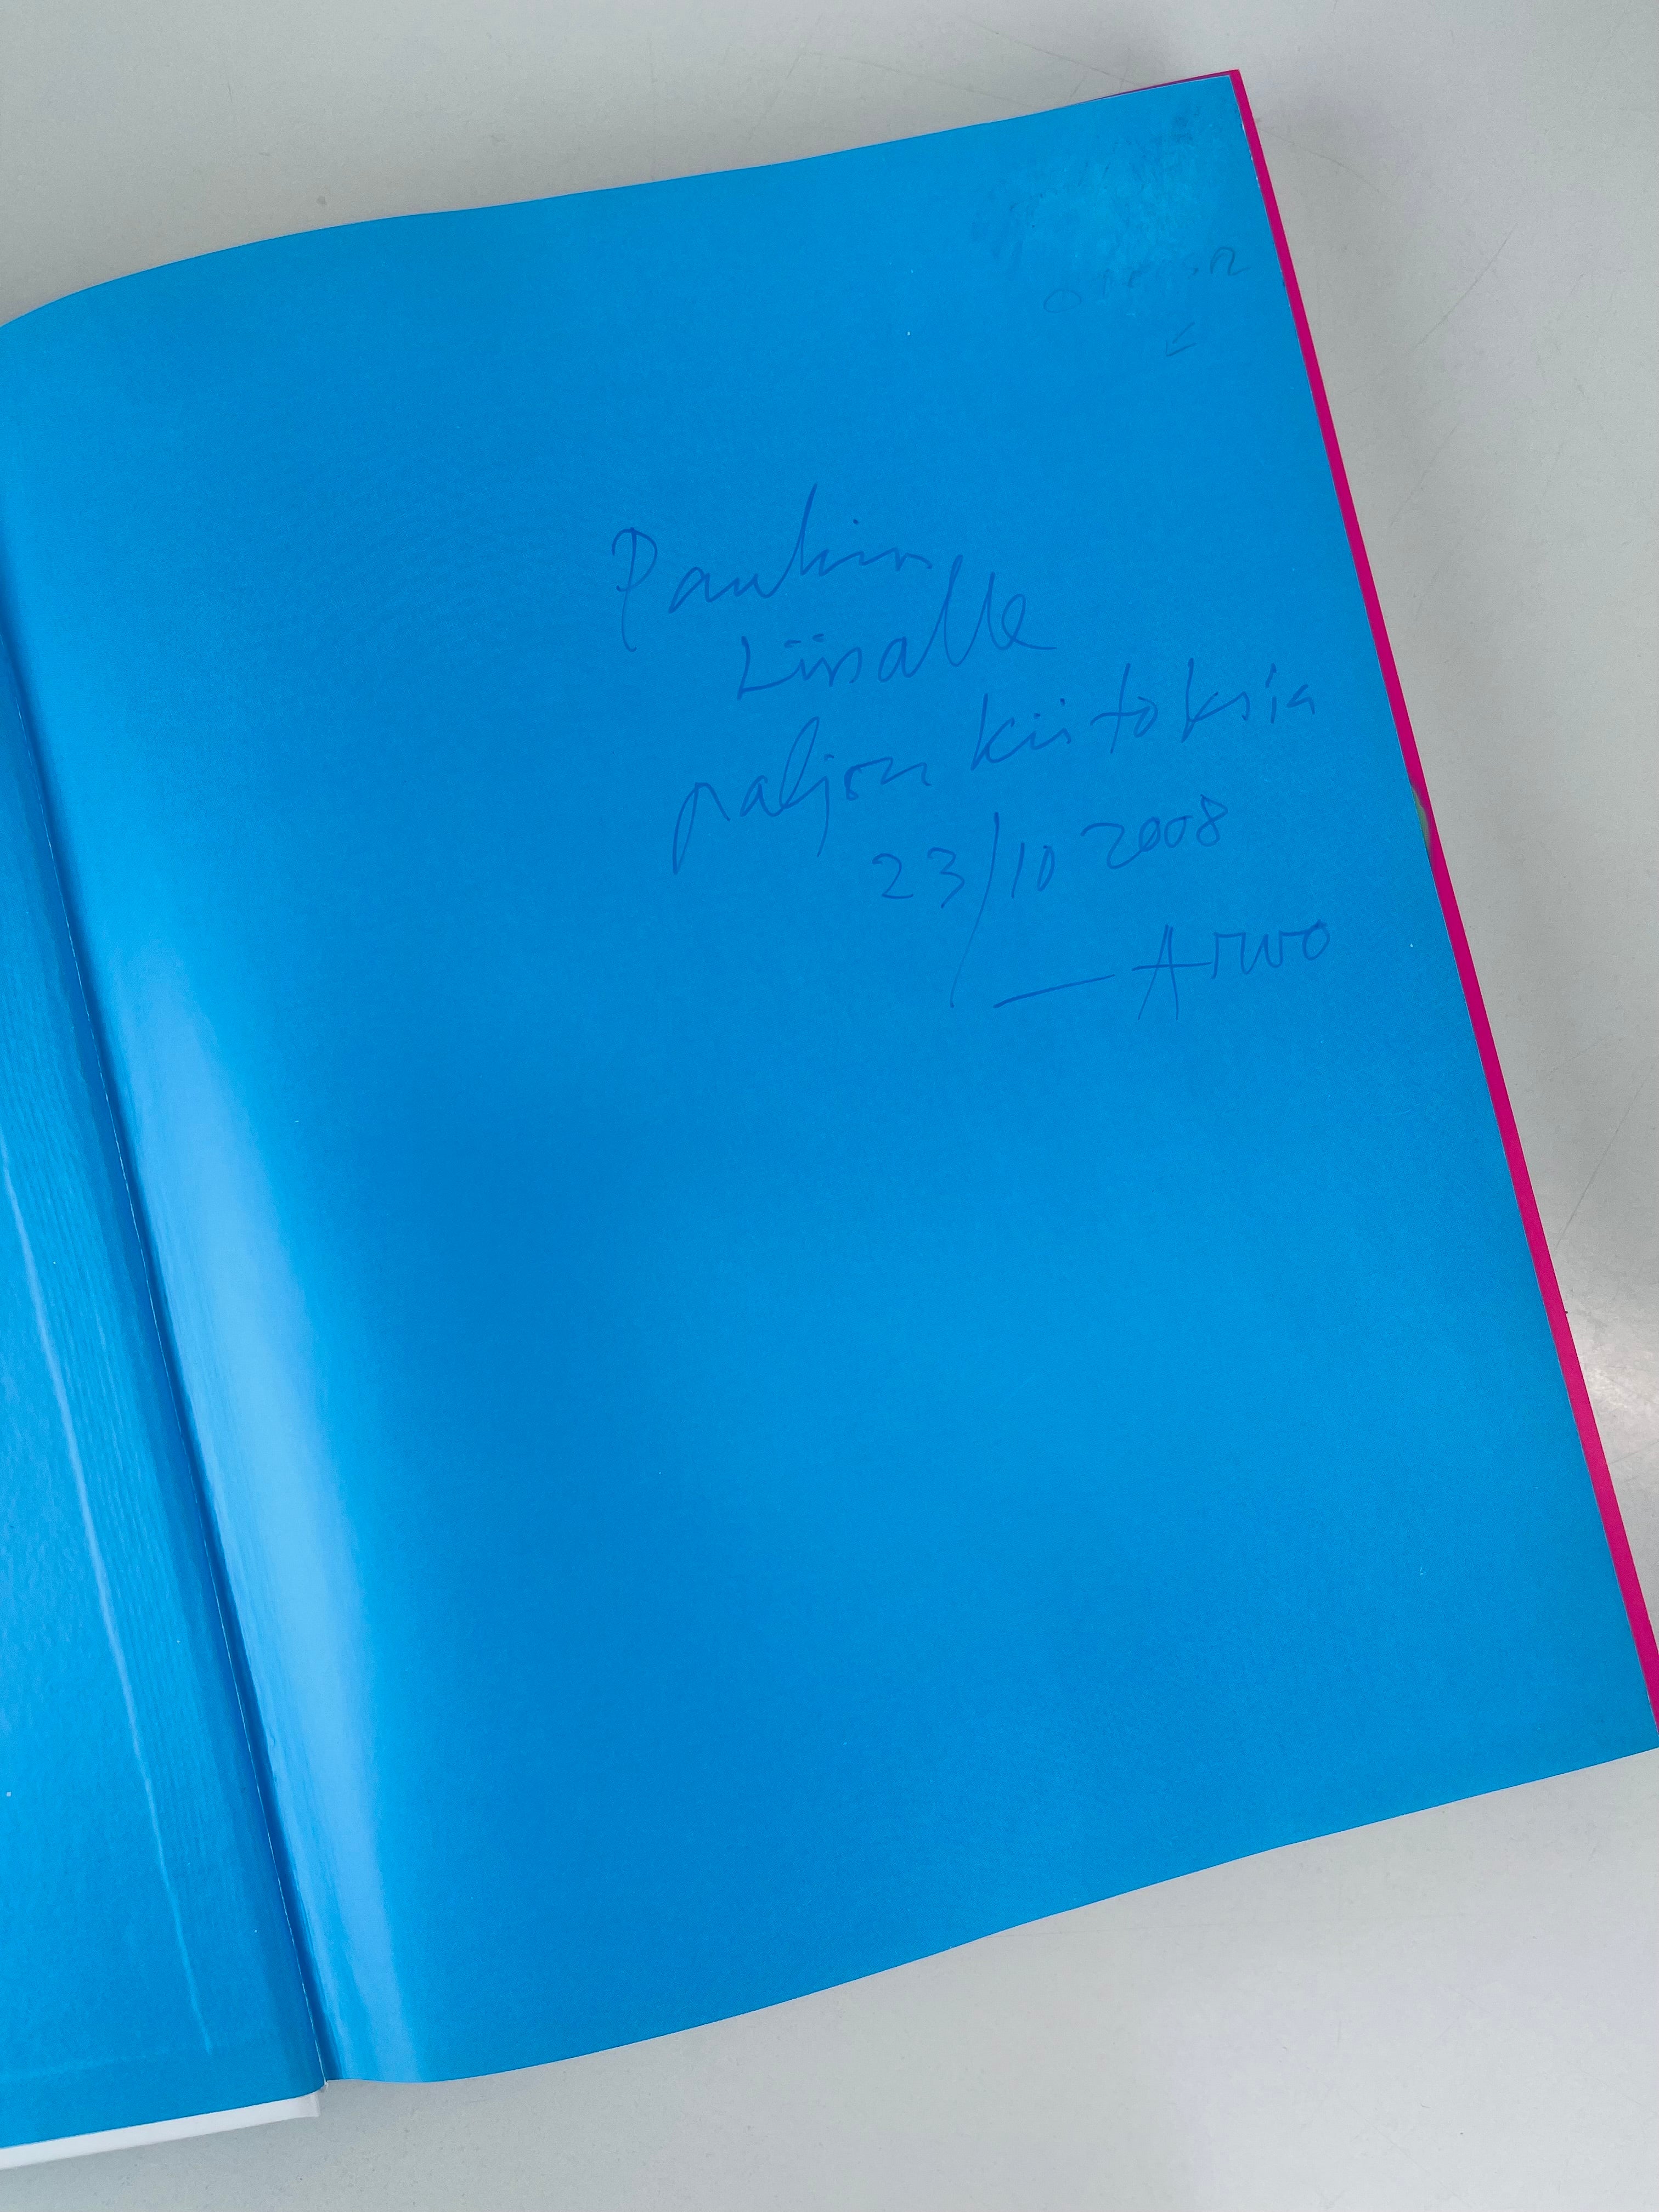 Paukin
Liisalle
paljon kiitoksia
23/10 2008
— Arvo